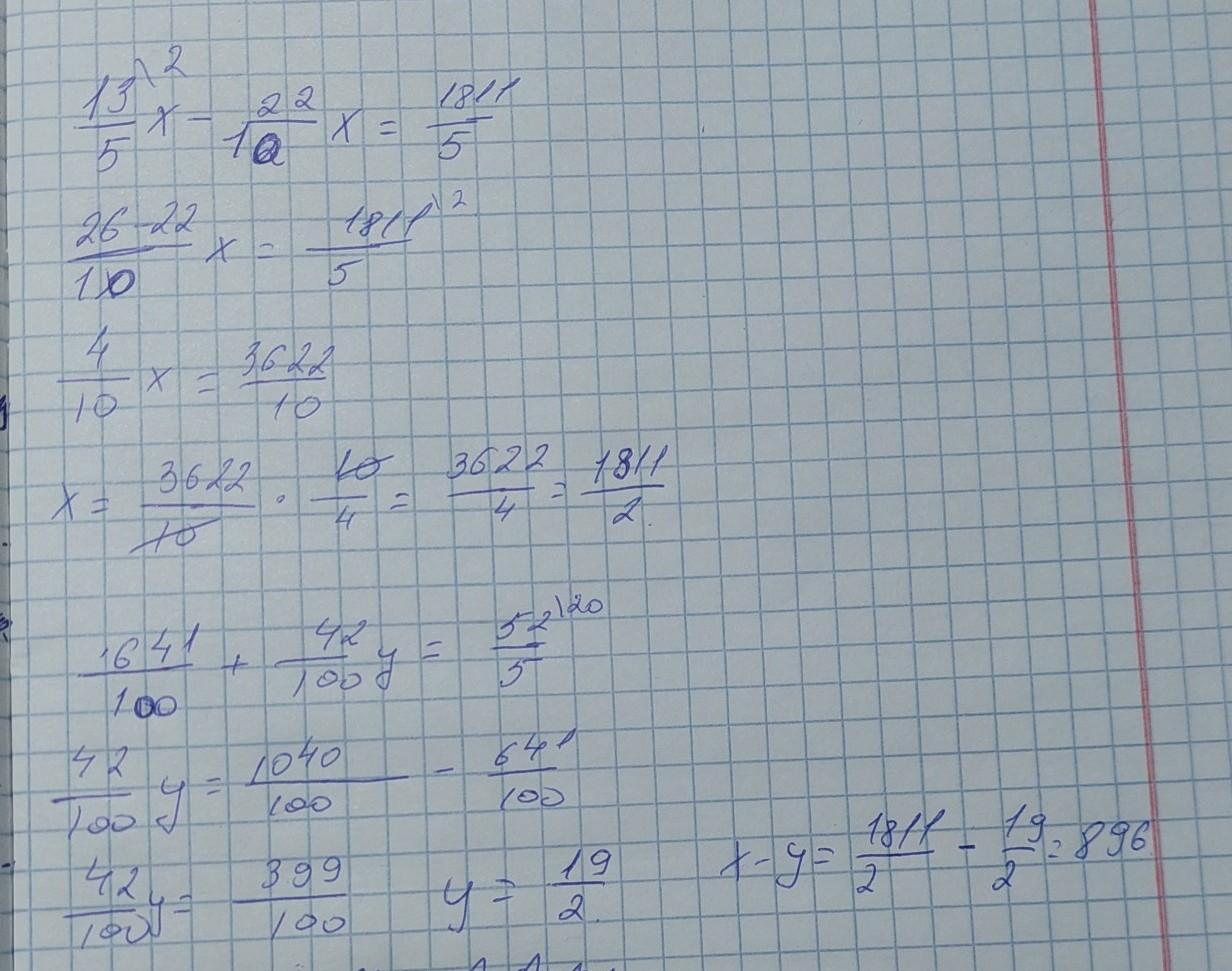 13\2/5 x - 22/10 x = 1811/5
26-22/10 x = 1811\2/5
4/10 x = 3622/10
x = 3622/10 · 10/4 = 3622/4 = 1811/2
641/100 + 42/100 y = 52\20/5
42/100 y = 1040/100 - 641/100
42/100 y = 399/100 y = 19/2 x - y = 1811/2 - 19/2 = 896